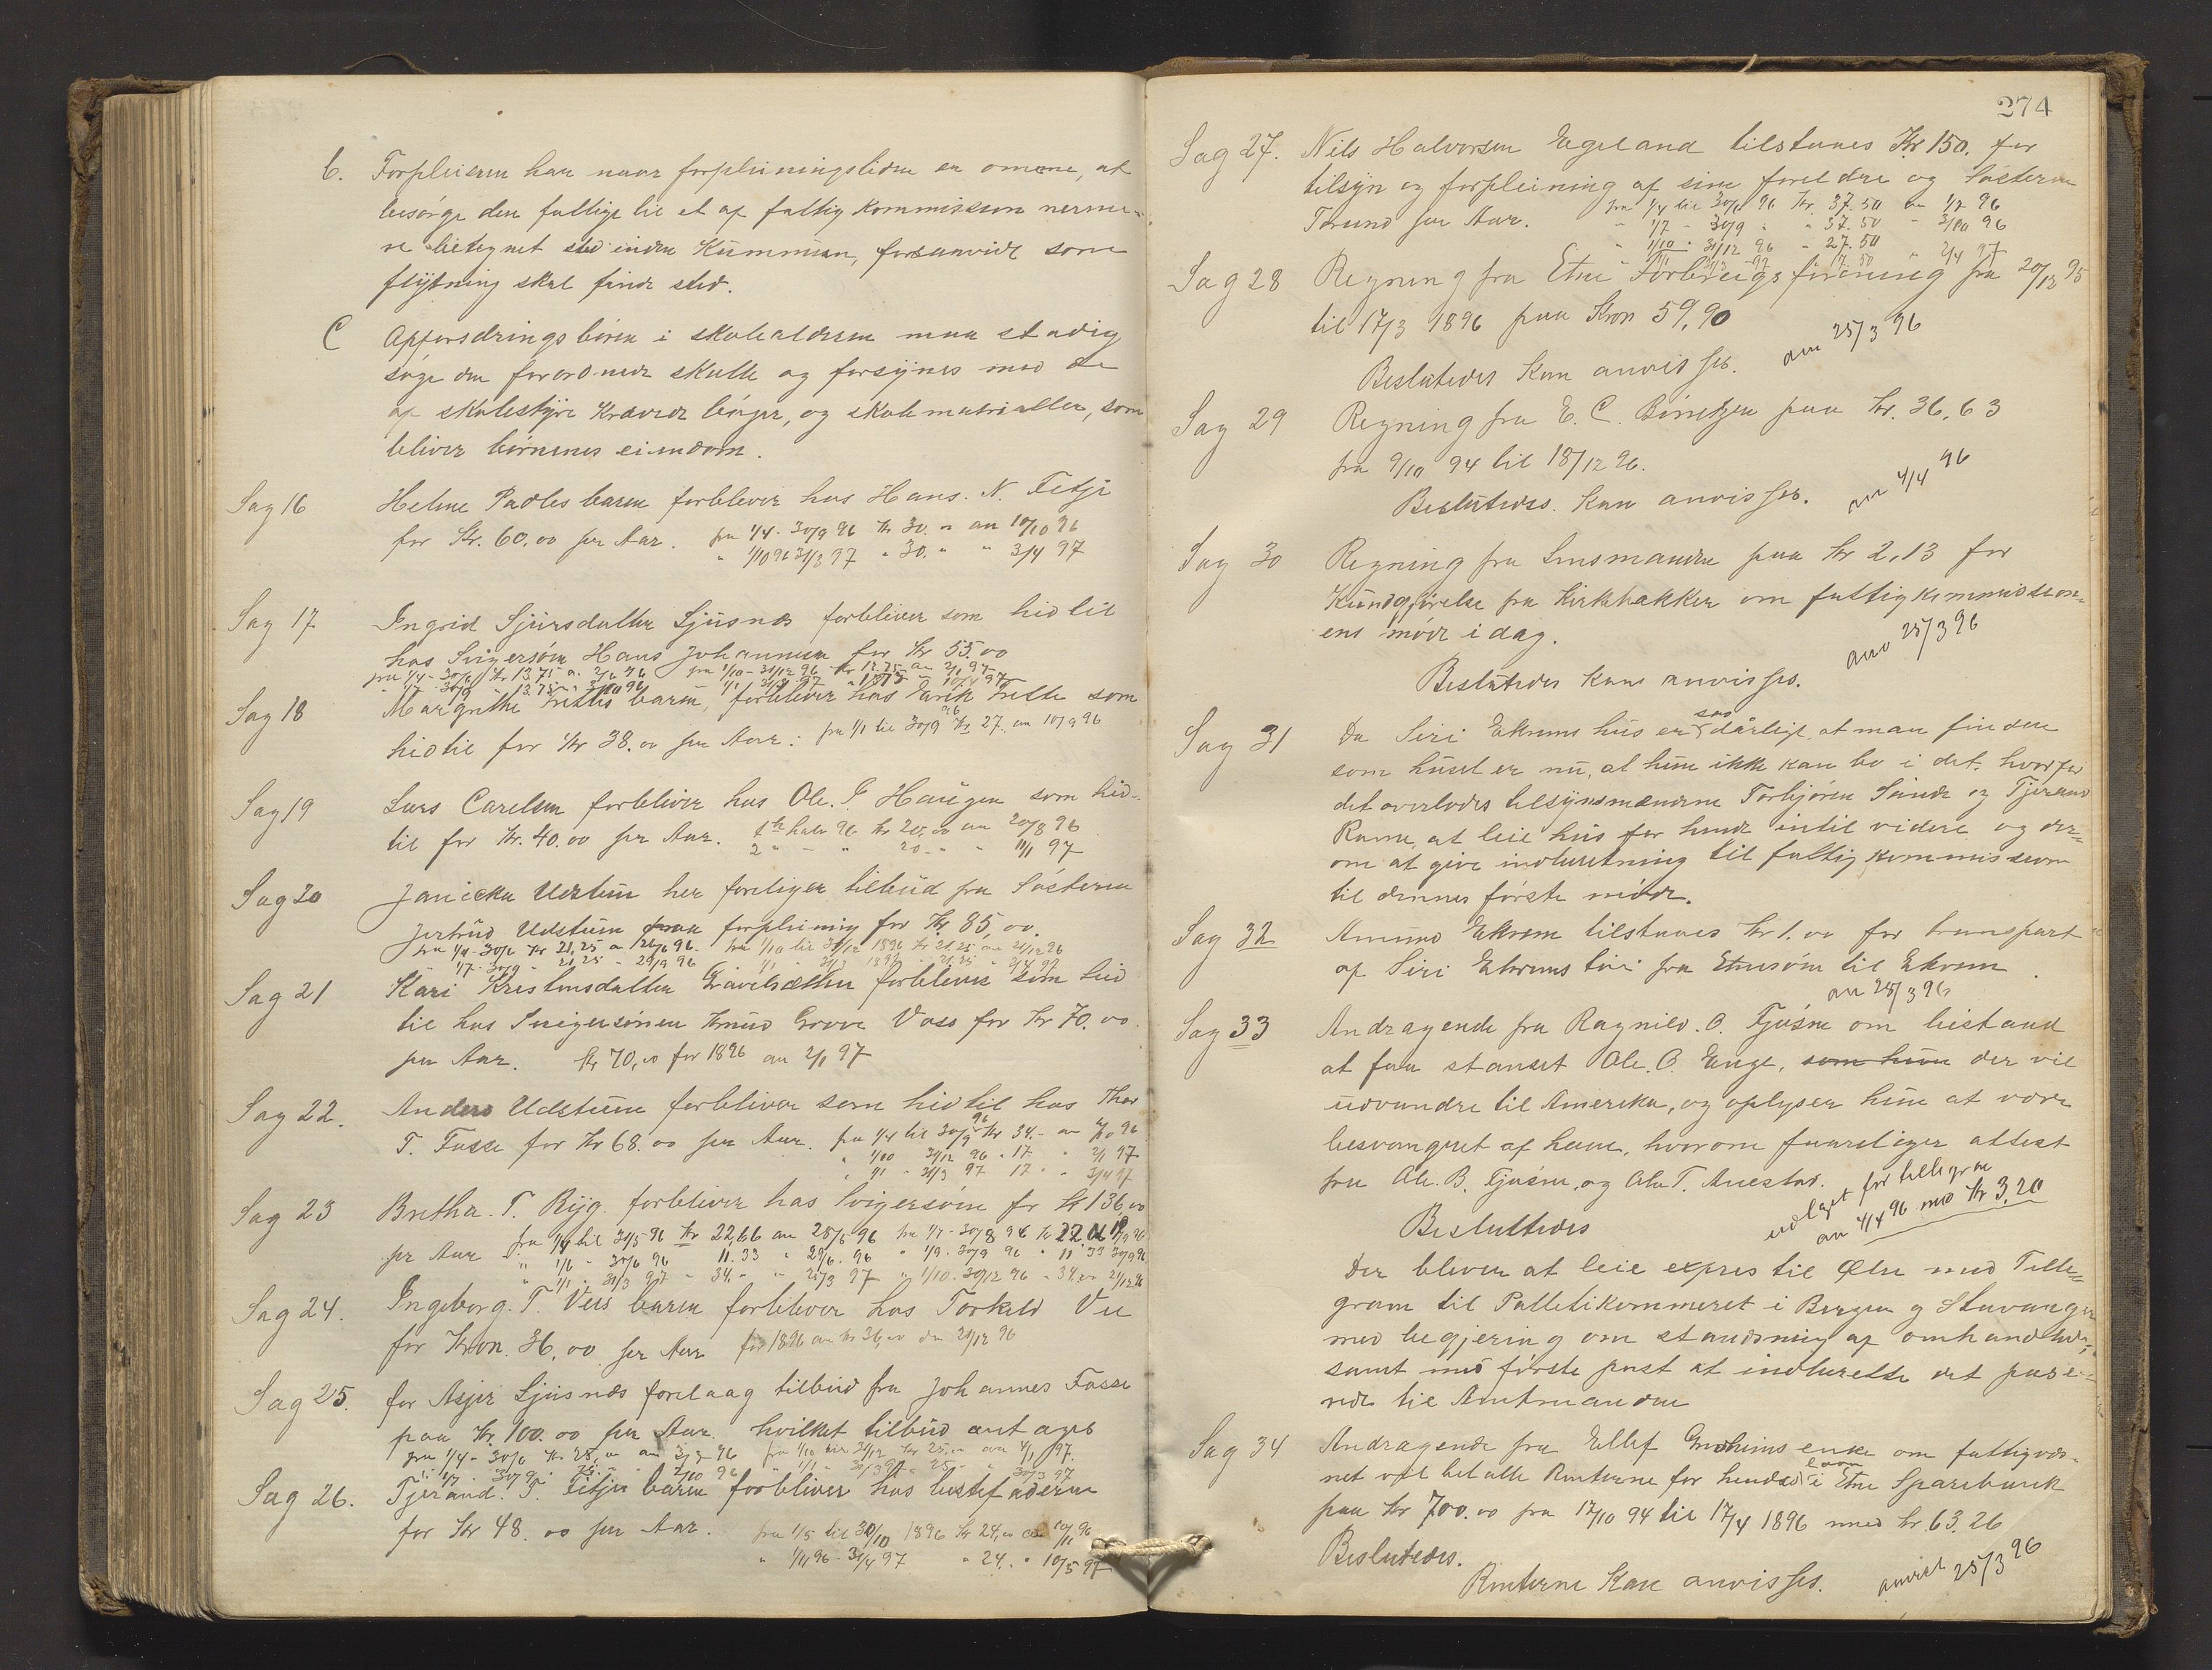 b. Forpleieren har naar forpleiningstiden er omme, at
besörge den fattige til et af fattig Kommisseon nerme-
re betegnet sted inden Kummunen, forsaavidt som
flytning skal finde sted.
C Opforsdringsbörn i skolealderen maa stadig
söge den forordnede skolle og forsynes med de
af skolestyre Krævede böger, og skolematrialler, som
bliver börnenes eiendom.
Sag 16 Helene Padles barn forblever hos Hans. N. Fetje
for Kr. 60,00 per Aar. fra 1/4 - 30/9 96 Kr 30. " an 10/10 96
" 1/10 96 31/3 97 " 30. " " 3/4 97
Sag 17 Ingrid Sjursdatter Sjusnæs forbliver som hid til
hos Svigersön Hans Johannesen for Kr 55.00
fra 1/4 - 30/6 Kr 13.75 a. 2/6 96 fra 1/10 - 31/12 96 Kr 13.75 an 2/1 97
Sag 18 Margrethe barn, forbliver hos Erik som
hidtil for Kr 38.00 per Aar. fra 1/1 til 30/9 96 Kr 27. an 10/9 96
Sag 19 Lars Carelsen forbliver hos Ole. G Haugen som hid-
til for Kr. 40.00 per Aar. 1ste halv 96 Kr 20,00 an 20/8 96
2 " - " 20. " " 11/1 97
Sag 20 Janicka Udstuen her foreliger tilbud fra Sösteren
Jertrud Udstuen paa forpleining for Kr 85,00.
fra 1/4 - 30/6 Kr 21,25 a 26/6 96. fra 1/10 til 31/12 1896 Kr 21.25 an 21/12 96
1/7 - 30/9 - 21,25 - 29/9 96 1/1 " 31/3 1897 " 21.25 " 2/4 97
Sag 21 Kari Kristensdatter Gravelsæther forbliver som hid
til hos Svigersönen Knud Grove Voss for Kr 70.00.
per Aar. Kr 70,00 for 1896 an 2/1 97
Sag 22. Anders Udstuen forbliver som hidtil hos Thor
T. Fosse for Kr 68.00 per Aar. fra 1/4 til 30/9 96 Kr 34.- an 96
" 1/10 31/12 96 " 17 " 2/1 97
" 1/1 " 31/3 97 17 " " 3/4 97
Sag 23 Bretha. T. Ryg. forbliver hos Svigersön for Kr 136,00
pr Aar fra 1/4 til 31/5 96 Kr 22,66 an 28/5 96 fra 1/7 - 30/8 96 Kr 22.
" 1/6 - 30/6 96 11.33 " 29/6. 96 " 1/9 - 30/9 96 " 11.33 30/9 96
" 1/1 " 31/3 97 " 34.- " 25/3 97 " 1/10 - 30/12 96 - 34. " 21/12 96
Sag 24. Ingeborg. T. Vees barn forbliver hos Torkeld Vee
for Kron. 36,00 per Aar for 1896 an Kr 36,00 den 20/12 96
Sag 25. for Asjer Sjusnæs forelaag tilbud fra Johannes Fosse
paa Kr. 100.00 per Aar. hvilket tilbud antages
fra 1/4 - 30/6 Kr. 25,00 an 3/7 96 fra 1/10 til 31/12 Kr 25,00 an 4/1 97.
" 1/7 - 30/9 - 25.- " 2/10 96 " 1/1 " 31/3 97 " 25 " 30/3 97
Sag 26. Tjerand. T. Fetjes barn forbliver hos bestefaderen
for Kr 48.00 per Aar. fra 1/5 til 31/10 1896 Kr 24,00 an 10/11 96
" 1/11 96 - 31/4 97 " 24. " 10/5 97
274
Sag 27. Nils Halvorsen Egeland tilstaaes Kr 150. for
tilsyn og forpleining af sine foreldre og Sösteren
Torund per Aar. fra 1/4 til 30/6 96 Kr. 37.50 an 1/7 96
" 1/7 - 30/9 " " 37.50 - 3/10 96
" 1/10 " 31/12 96 " 27.50 " 2/4 97
Sag 28 Regning fra Etne Forbrugsforening fra 20/12 95
til 17/3 1896 paa Kron 59,90
Beslutedes Kan anvisses. anv 25/3 96
Sag 29 Regning fra E. C. Börretzen paa Kr. 36,63
fra 9/10 94 til 18/12 96.
Beslutedes. Kan anvisses. anv 4/4 96
Sag 30 Regning fra Lensmanden paa Kr 2,13 for
Kundgjörelse fra Kirkebakken om fattigkommisseon-
ens möde i dag.
Beslutedes Kan anvisses. anv 25/3 96
Sag 31 Da Siri Ekrems hus er saa dårligt, at man finder
som huset er nu, at hun ikke kan bo i det. hvorfor
det overlodes tilsynsmændene Torbjören Sande og Tjerand
Rame, at leie hus for hende intil videre og der-
om at give indberetning til fattigkommisseon
til dennes förste möde.
Sag 32 Amund Ekrem tilstaaes Kr 1.00 for transport
af Siri Ekrems töi fra Etnesöen til Ekrem.
an 25/3 96
Sag 33 Andragende fra Ragnild. O. Tjösne om bistand
at faa stanset Ole. O. Enge, som hun der vil
udvandre til Amerika, og oplyser hun at være
besvangret af ham, hvorom foreliger attest
fra Ole. B. Tjösne, og Ole T. Austad.
udlaget for tellegram
an 4/4 96 med Kr 3.20
Besluttedes
Der bliver at leie expres til Ölen med Telle-
gram til Pollitikammeret i Bergen og Stavanger
med begjering om standsning af omhandlede,
samt med förste post at indberette det passe-
rede til Amtmanden
Sag 34 Andragende fra Ellef Grindheims enke om fattigvæs-
net vil betalle Renterne for hendes laan i Etne Sparebank
paa Kr 700.00 fra 17/10 94 til 17/4 1896 med Kr. 63.26
Beslutedes.
Renterne Kan anvisses. anvist 25/3 96